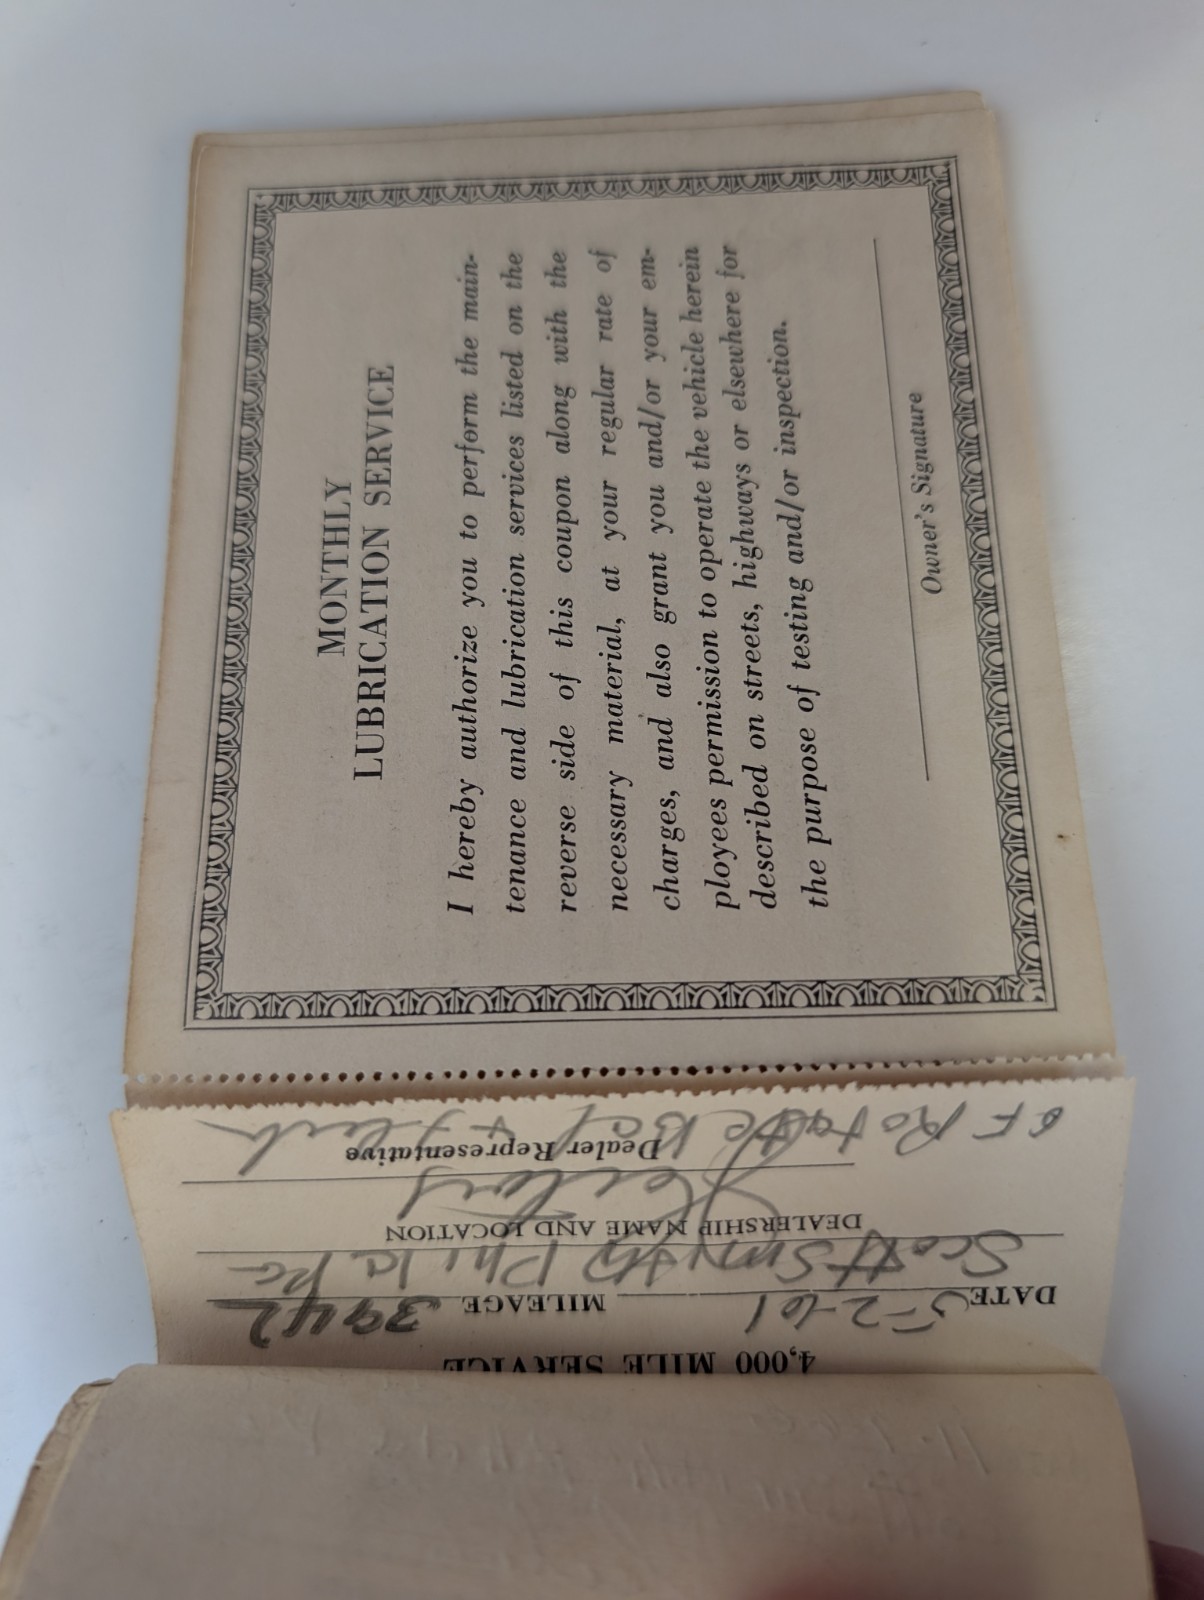 MONTHLY
LUBRICATION SERVICE
I hereby authorize you to perform the main-
tenance and lubrication services listed on the
reverse side of this coupon along with the
necessary material, at your regular rate of
charges, and also grant you and/or your em-
ployees permission to operate the vehicle herein
described on streets, highways or elsewhere for
the purpose of testing and/or inspection.
Owner's Signature
4,000 MILE SERVICE
DATE 5-2-61 MILEAGE 3942
Scott Smith Phila Pa
DEALERSHIP NAME AND LOCATION
Dealer Representative
OF Rotate Bal &